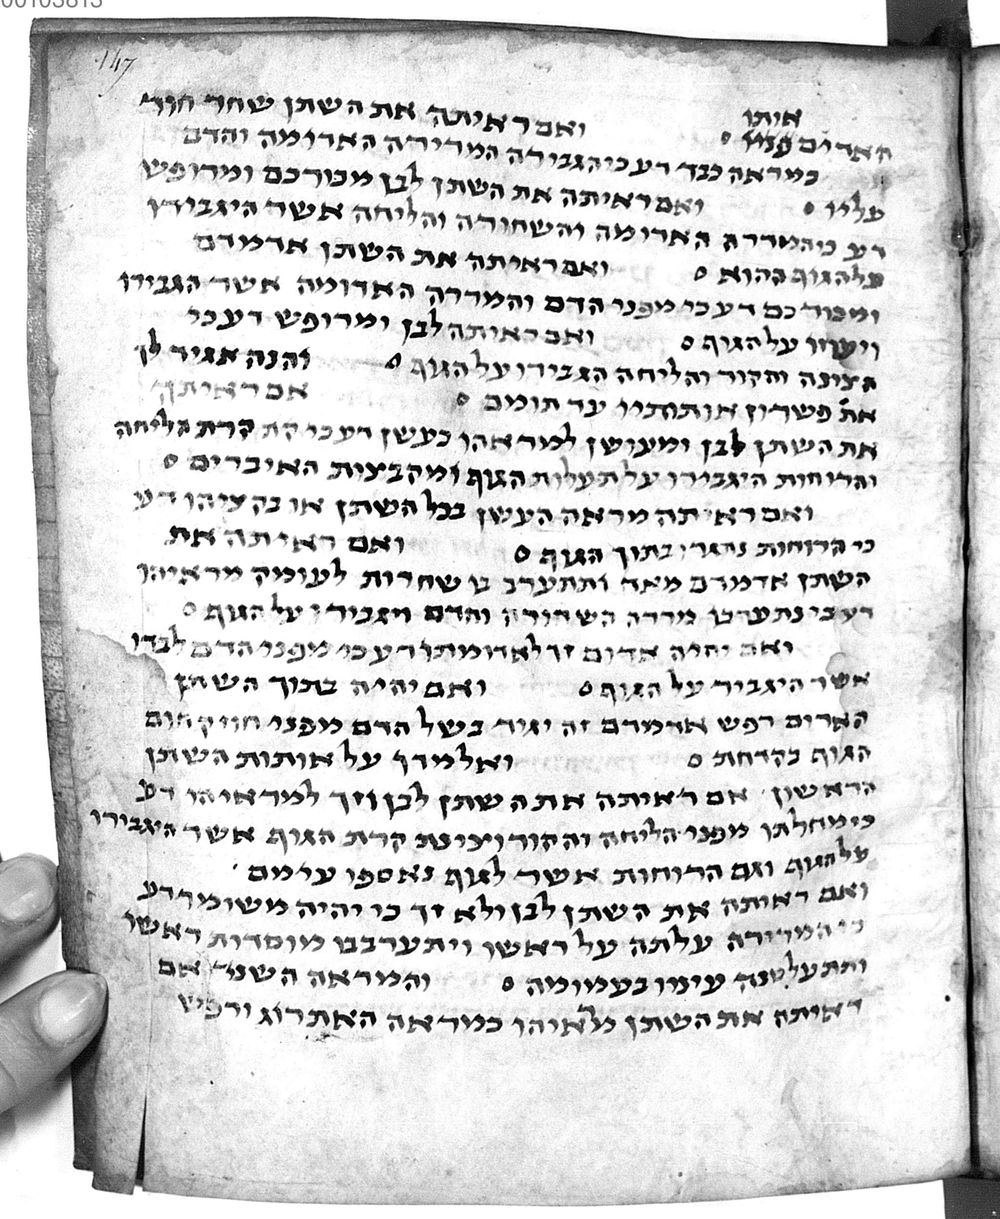 00103813
147
אותו ואם ראיתה את השתן שחר חור
האדים
כמראה כבד דע כי הגבירה המרירה האדומה והדם
עליו ואם ראיתה את השתן לבן מכורכם ומרופש
דע כי המררה האדומה והשחורה והליחה אשר היגבירו
על הגוף ההוא ואם ראיתה את השתן אדמדם
ומכורכם דע כי מפני הדם והמררה האדומה אשר הגבירו
ויעזו על הגוף ואם ראיתה לבן ומרופש דע כי
הצינה והקור והליחה הגבירו על הגוף והנה אגיד לך
את פשרון אותותיו עד תומם אם ראיתה
את השתן לבן ומעושן למראהו כעשן דע כי קרת הליחה
והרוחות היגבירו על תעלות הגוף ומקבצות האיברים
ואם ראיתה מראה העשן בכל השתן או בקציהו דע
כי הרוחות בתוך הגוף ואם ראיתה את
השתן אדמדם מאד ותתערב בו שחרות לעומק מראיהו
דע כי נתערבו מררה השחורה והדם ויגבירו על הגוף
ואם יהיה אדום זך לאדומתו דע כי מפני הדם לבדו
אשר היגביר על הגוף ואם יהיה בתוך השתן
האדים רפש אדמדם זה יגיד בשל הדם מפני חוזק חום
הגוף בקדחת ואלמדך על אותות השתן
הראשון אם ראיתה את השתן לבן וזך למראיהו דע
כי מחלתו מפני הליחה והקור וצינת קרת הגוף אשר היגבירו
על הגוף וגם הרוחות אשר לגוף נאספו עימם
ואם ראיתה את השתן לבן ולא זך כי יהיה משומר דע
כי המרירה עלתה על ראשו ויתערבבו מוסדות ראשו
ותתעלטנה עיניו בעמומה והמראה השני אם
ראיתה את השתן מראיהו כמראה האתרוג ורפש